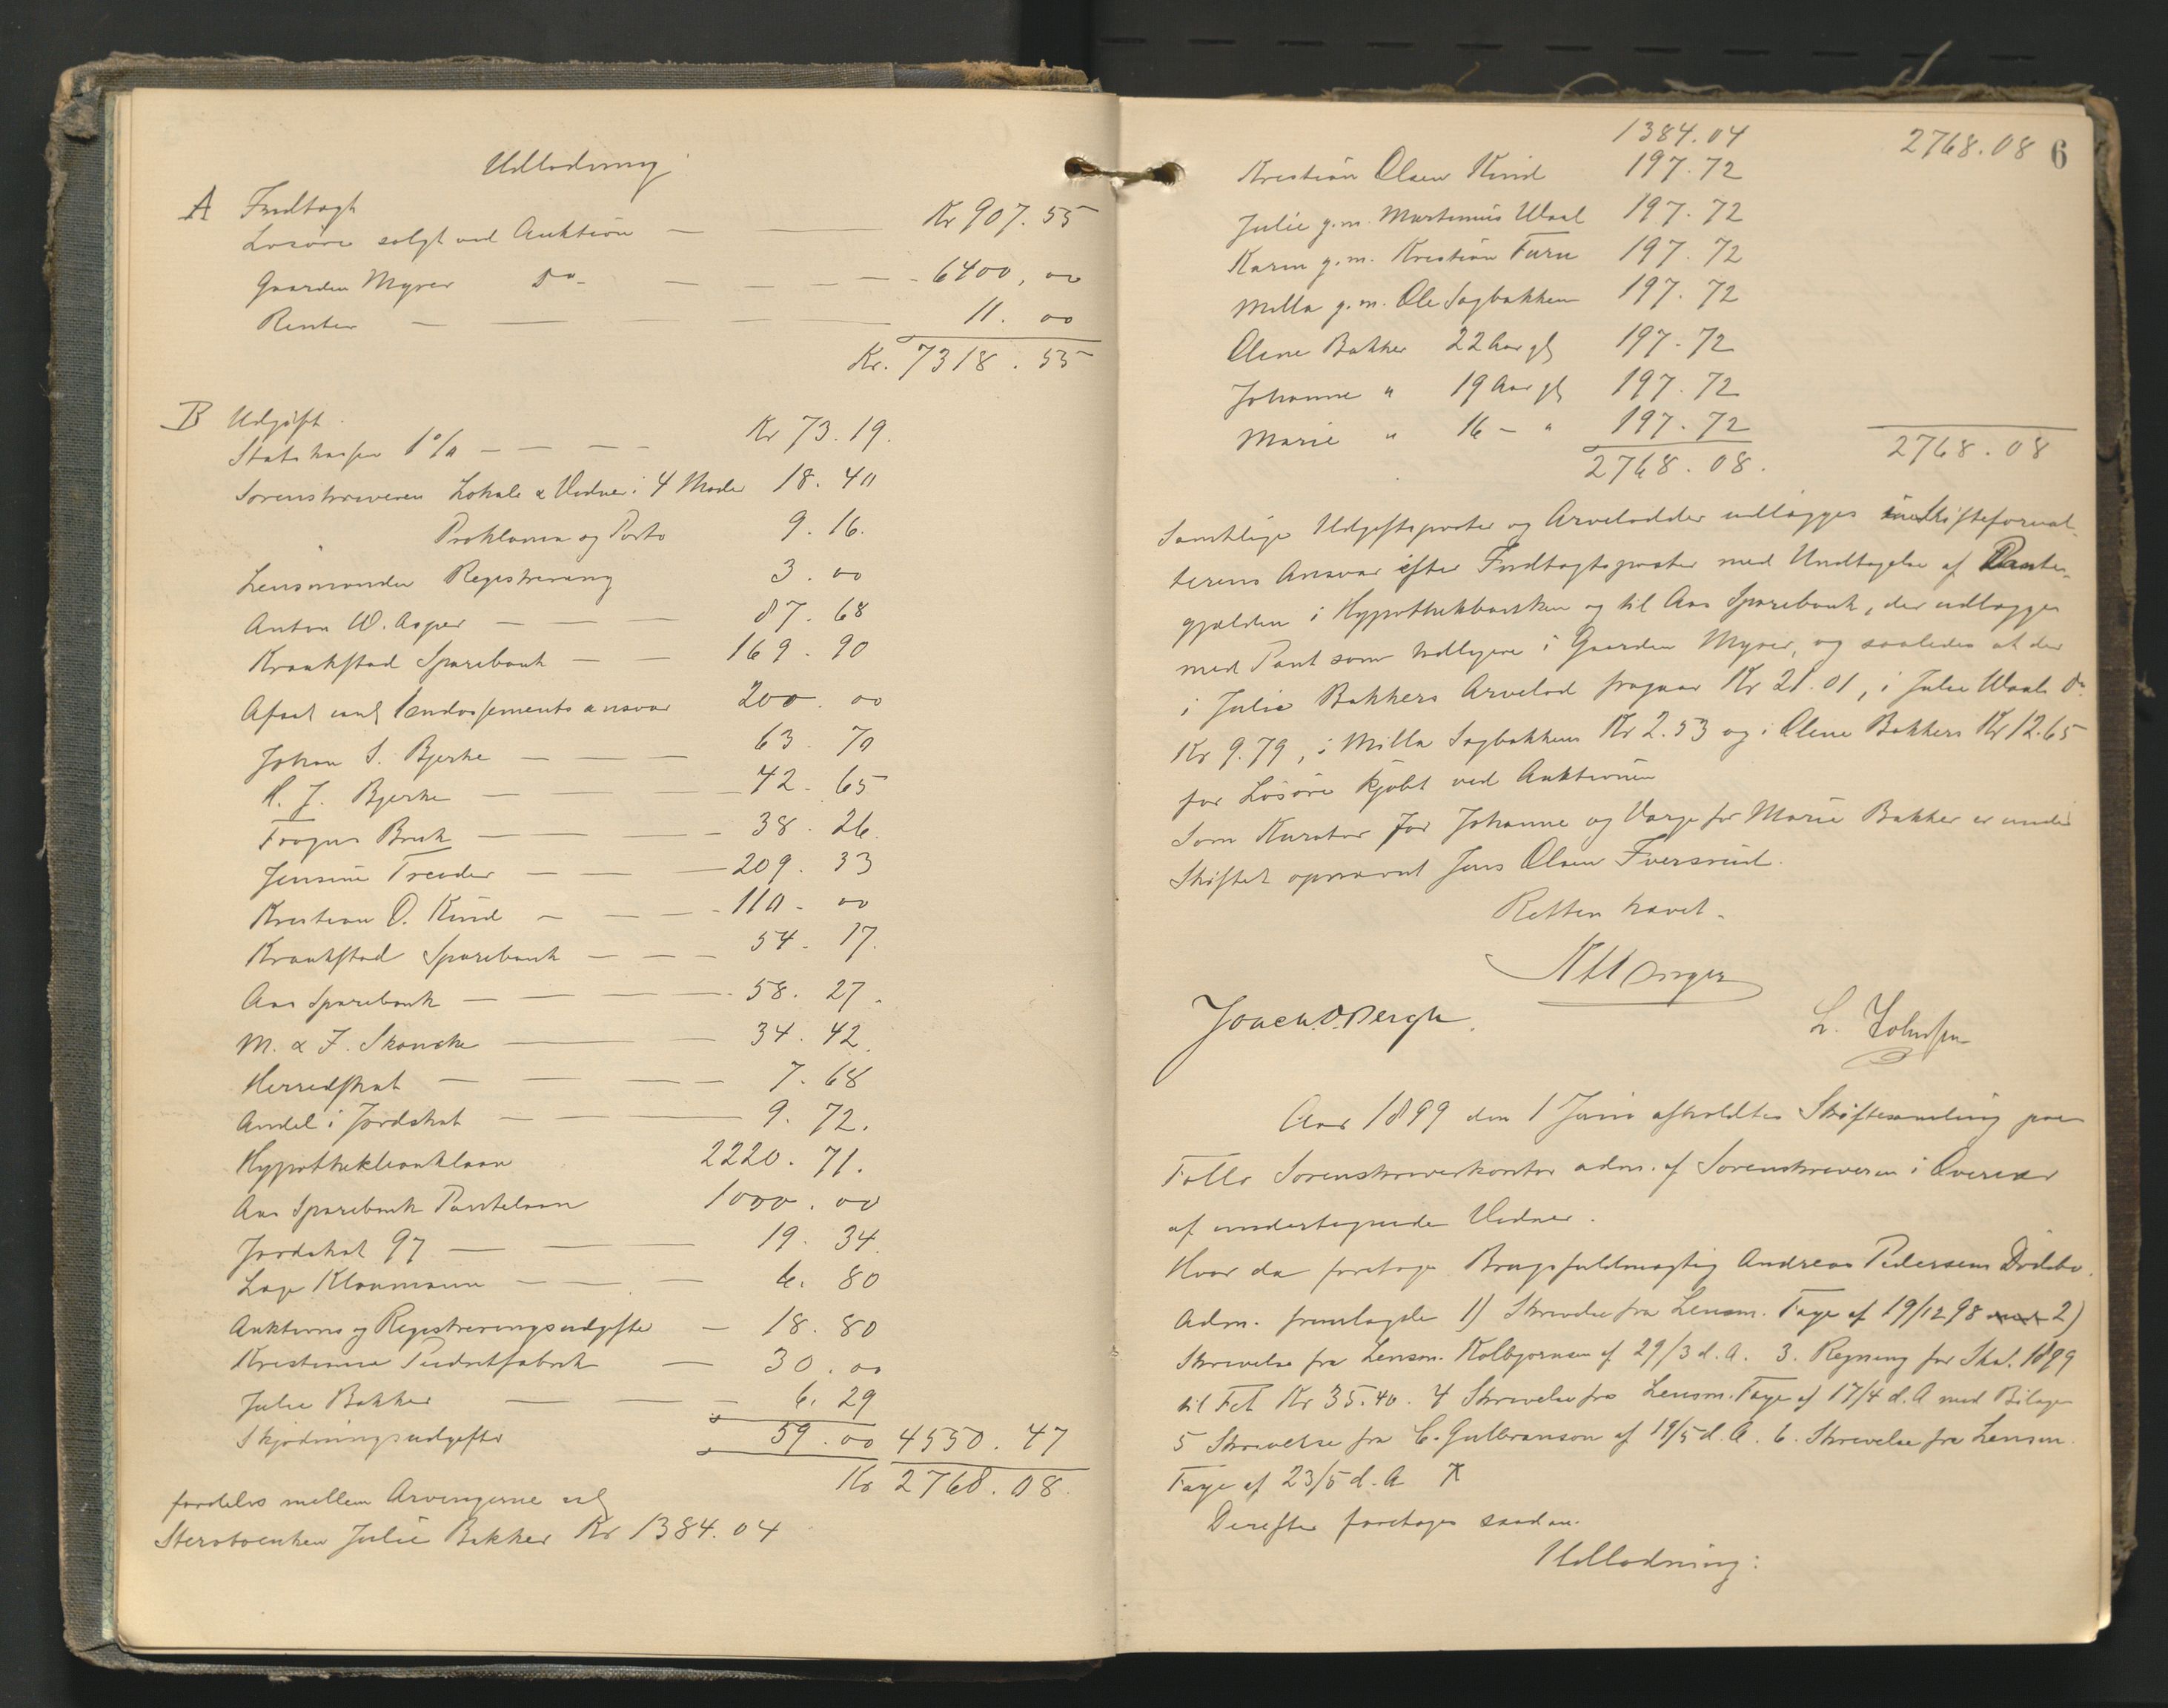 Udlodning
A Indtægt
Løsøre solgt ved Auktion — — Kr 907.55
Gaarden Myrer Do — — — — 6400,00
Renter — — — — 11.00
Kr. 7318.55
B Udgift.
Statskassen 1% — — — — Kr 73.19.
Sorenskriveren Lokale & Vidner i 4 Møder 18.40
Proklama og Porto 9.16.
Lensmanden Registrering 3.00
Anton W. Asper — — — 87.68
Kraakstad Sparebank — — 169.90
Afsat Endossements ansvar 200.00
Johan S. Bjerke — — — 63.70
H. J. Bjerke — — — 42.65
Brug — — — 38.26.
Jensine Treider — — — 209.33
Kristian O. Kind — — — 110.00
Kraakstad Sparebank — — — 54.17.
Aas Sparebank — — — 58.27.
M. & J. Skancke — — — 34.42.
Herredskat — — — 7.68
Andel i Jordskat — — — 9.72.
Hypothekbanklaan 2220.71.
Aas Sparebank Pantelaan 1000.00
Jordskat 97 — — — 19.34.
Lage Klanmann — — — 6.80
Auktions og Registreringsudgifter — 18.80
Kristiania Pudretfabrik — 30.00
Julie Bakker — — 6.29
Skjødningsudgifter 59.00 4550.47
Kr 2768.08.
fordeles mellem Arvingerne
Sterboenken Julie Bakker Kr 1384.04
1384.04 2768.08 6
Kristian Olsen Kind 197.72
Julie g.m. Martinius Waal 197.72
Karen g.m. Kristian Furu 197.72
Milla g.m. Ole Sagbakken 197.72
Oline Bakker 22 Aar gl 197.72
Johanne " 19 Aar gl 197.72
Marie " 16 — " 197.72
2768.08. 2768.08
Samtlige Udgiftsposter og Arvelodder udlægges Skifteforval-
terens Ansvar efter Indtægtsposter med Undtagelse af Pante-
gjælden i Hypothekbanken og til Aas Sparebank, der udlægges
med Pant som tidligere i Gaarden Myrer, og saaledes at der
i Julie Bakkers Arvelod fragaar Kr 21.01, i Julie Waals Do
Kr 9.79, i Milla Sagbakkens Kr 2.53 og i Oline Bakkers Kr 12.65
for Løsøre kjøbt ved Auktionen
Som Kurator for Johanne og Værge for Marie Bakker er under
Skiftet opnævnt Jens Olsen Tversrud.
Retten hævet.
Joach. O. Bergh. L. Johnsen
Aar 1899 den 1 Juni afholdtes Skiftesamling paa
Follo Sorenskriverkontor adm. af Sorenskriveren i Overvær
af undertegnede Vidner.
Hvor da foretoges Brugsfuldmægtig Andreas Pedersens Dødsbo.
Adm. fremlagde 1) Skrivelse fra Lensm. Faye af 19/12 98 2)
Skrivelse fra Lensm. Kolbjørnsen af 29/3 d. A. 3. Regning for Skat 1899
til Fet Kr 35.40. 4 Skrivelse fra Lensm. Faye af 17/4 d. A med Bilage
5 Skrivelse fra C. Gulbranson af 19/5 d. A. 6. Skrivelse fra Lensm.
Faye af 23/5 d. A
Derefter foretoges saadan
Udlodning: